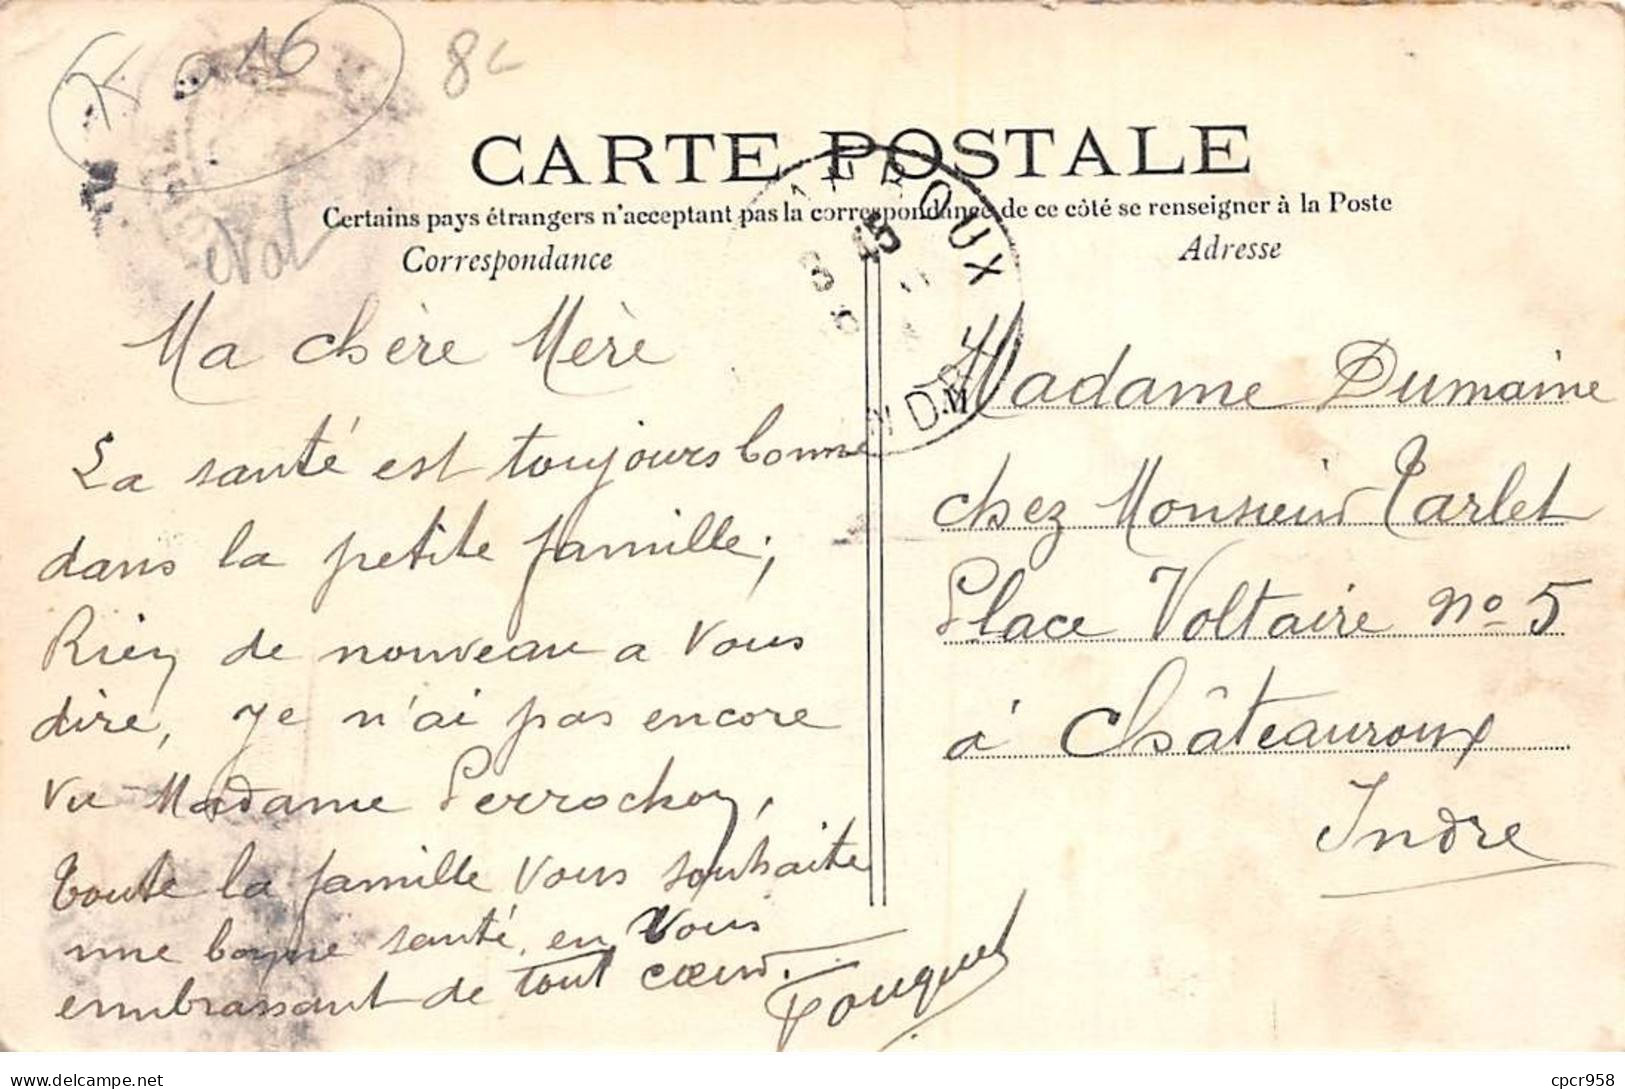 8c
CARTE POSTALE
Certains pays étrangers n'acceptant pas la correspondance de ce côté se renseigner à la Poste
Correspondance
Adresse
Ma chère Mère
La santé est toujours bonne
dans la petite famille;
Rien de nouveau a Vous
dire, je n'ai pas encore
vu Madame Perrochon,
toute la famille Vous souhaite
une bonne santé, en Vous
embrassant de tout coeur.
Fouquet
Madame Dumaine
chez Monsieur Tarlet
Place Voltaire No 5
à Châteauroux
Indre
delcampe.net
cpcr958